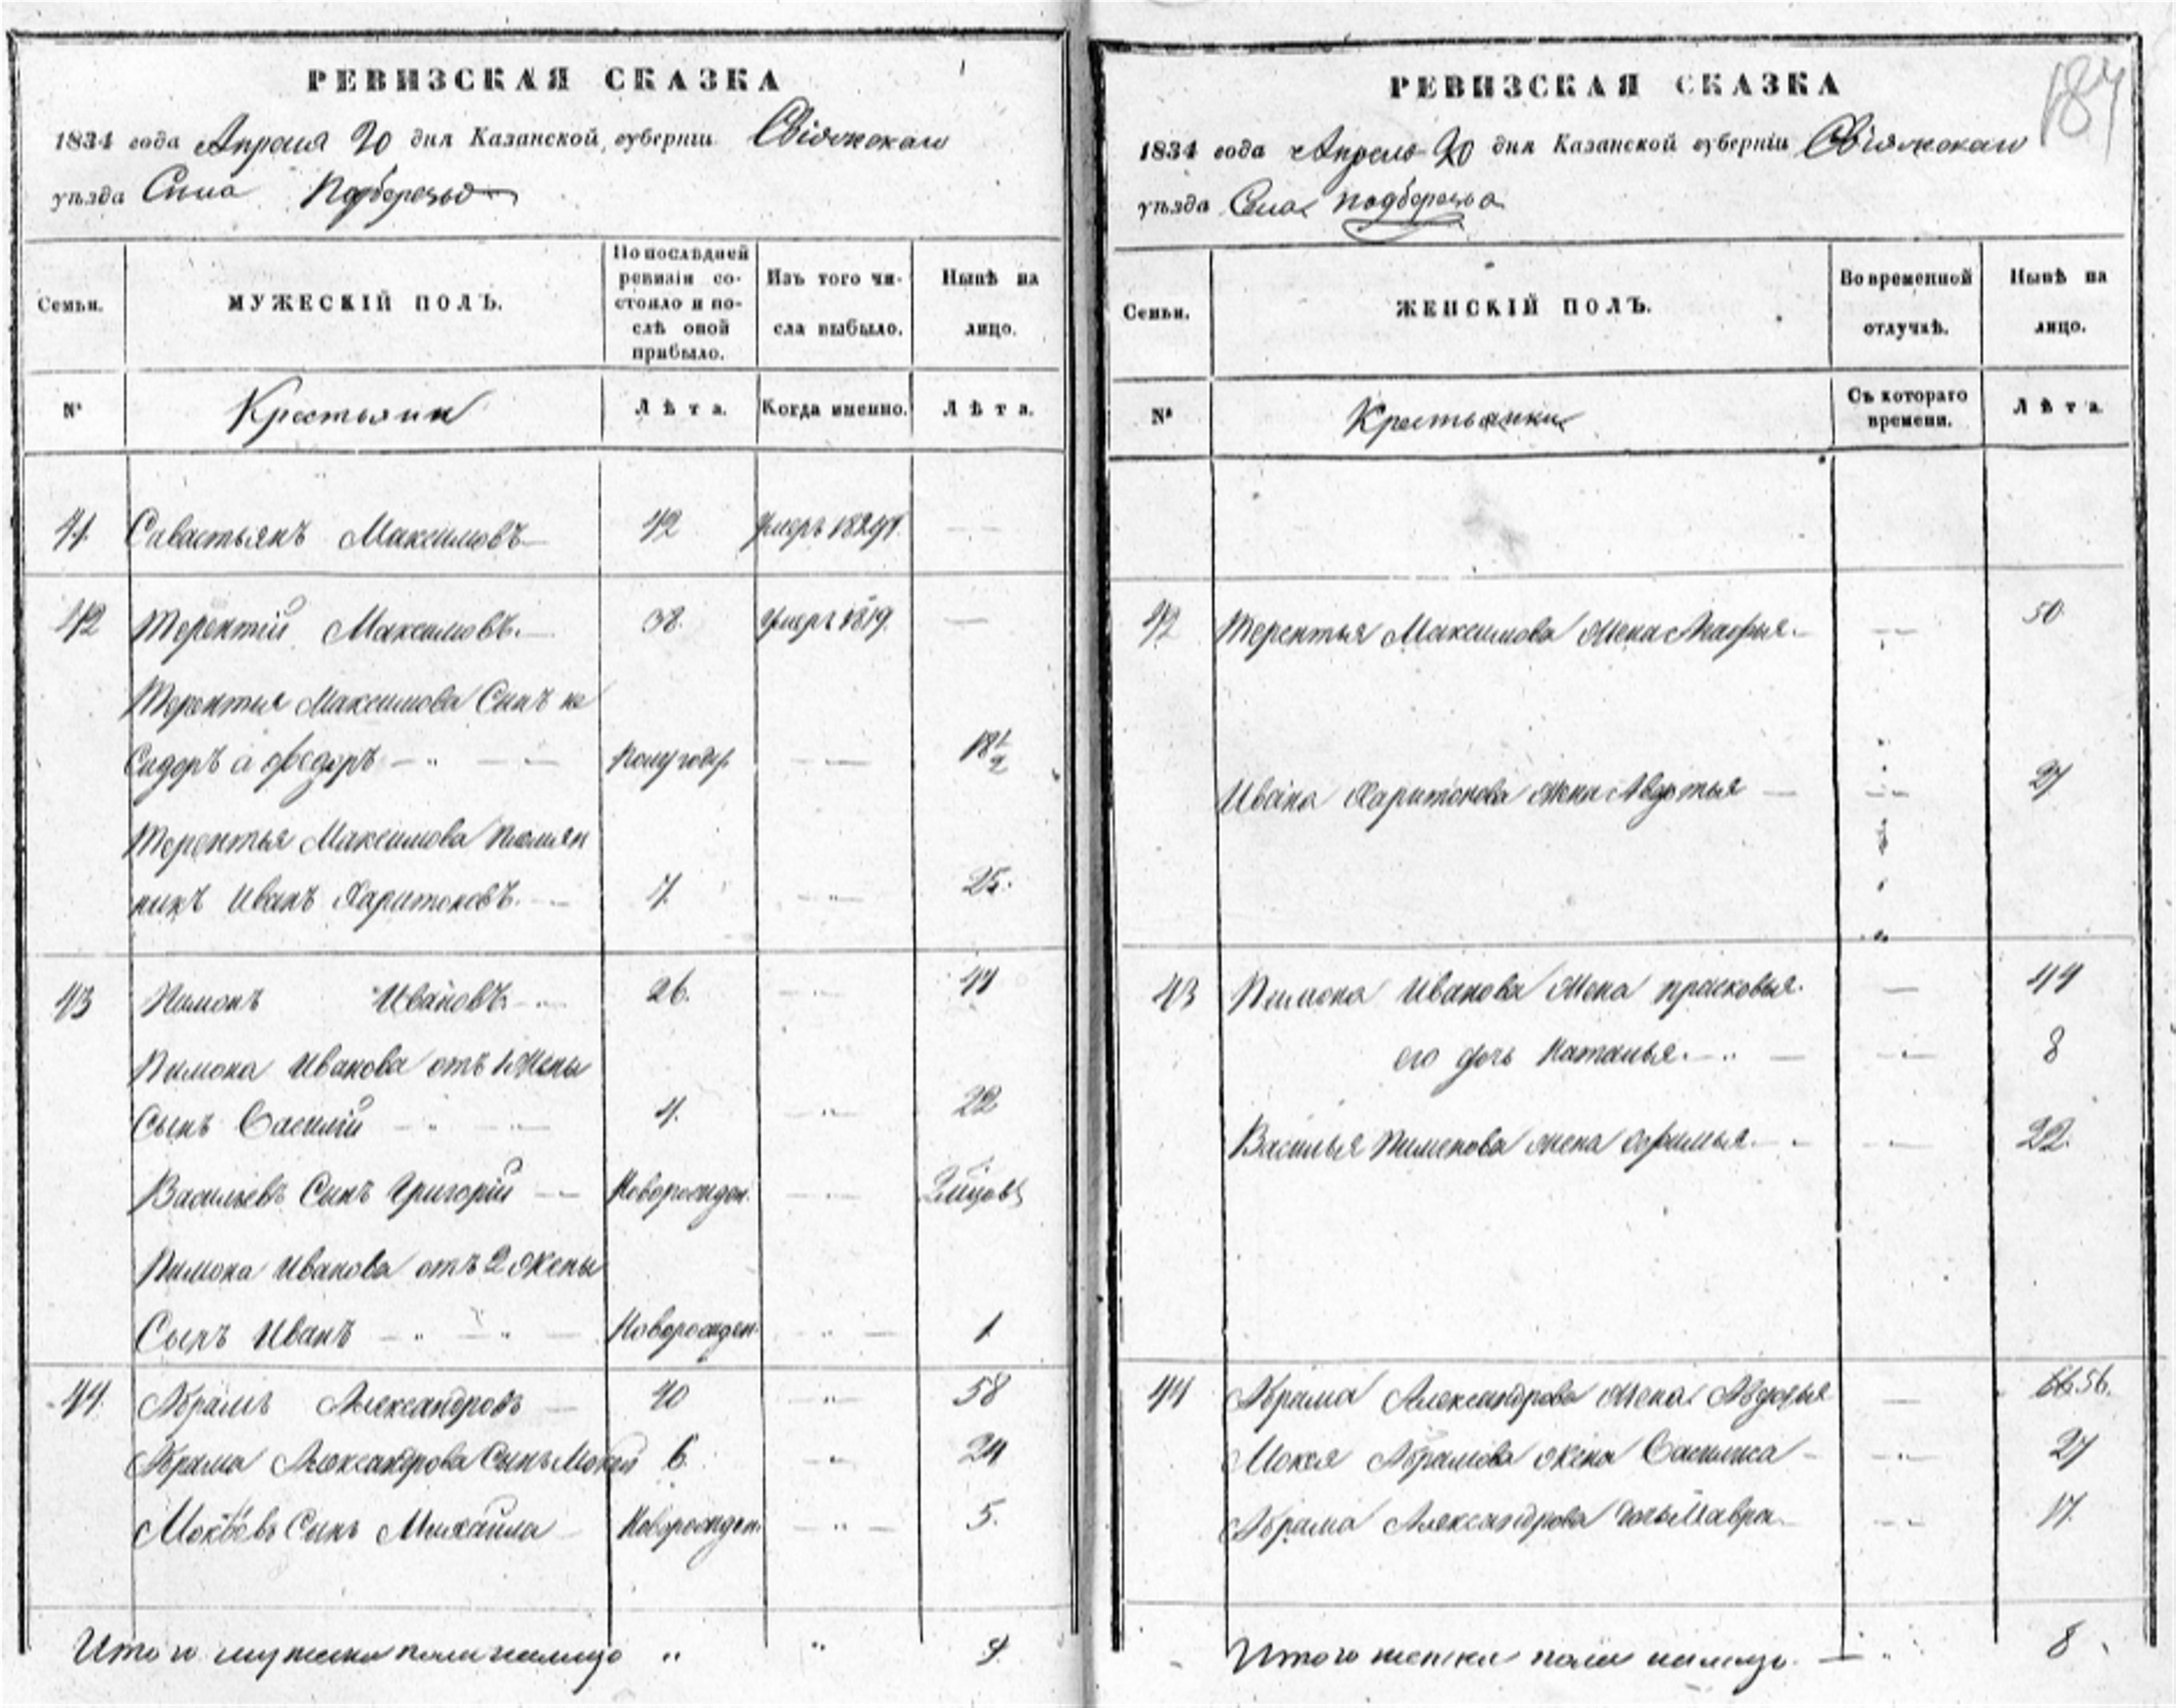 РЕВИЗСКАЯ СКАЗКА
1834 года Апреля 20 дня Казанской губерніи Свіяжскаго
уѣзда Села Подберезья
Семьи.
МУЖЕСКІЙ ПОЛЪ.
По послѣдней
ревизіи со-
стояло и по-
слѣ оной
прибыло.
Изъ того чи-
сла выбыло.
Нынѣ на
лицо.
№
Крестьяни
Лѣта.
Когда именно.
Лѣта.
41. Савастьянъ Максимовъ 42 умеръ
42 Терентій Максимовъ. 38. умеръ 1819.
Терентья Максимова Сынъ не
Сидоръ а федоръ полугоду 18 1/2
Терентья Максимова племян
никъ Иванъ Харитоновъ. 7. 25.
43 Пимонъ Ивановъ 26. 44
Пимона Иванова отъ 1 Жены
Сынъ Василій 4. 22
Васильевъ Сынъ Григорій Новорожден.
Пимона Иванова отъ 2 жены
Сынъ Иванъ Новорожден. 1
44. Абрамъ Александровъ 40 58
Абрама Александрова Сынъ Мокей 6. 24
Мокеевъ Сынъ Михаила Новорожден. 5.
Итого мужеска пола налицо " " 9.
РЕВИЗСКАЯ СКАЗКА
187
1834 года Апреля 20 дня Казанской губерніи Свіяжскаго
уѣзда Села подберезья
Семьи.
ЖЕНСКІЙ ПОЛЪ.
Во временной
отлучкѣ.
Нынѣ на
лицо.
№
Крестьянки
Съ котораго
времени.
Лѣта.
42 Терентья Максимова Жена 50.
Ивана Харитонова жена Авдотья 27
43 Пимона Иванова Жена прасковья. 44
его дочь Наталья. 8
Василья Пименова жена Афимья. 22.
44 Абрама Александрова жена Авдотья 56.
Мокея Абрамова жена Василиса 27
Абрама Александрова дочь Мавра 17.
Итого женска пола налицо. 8